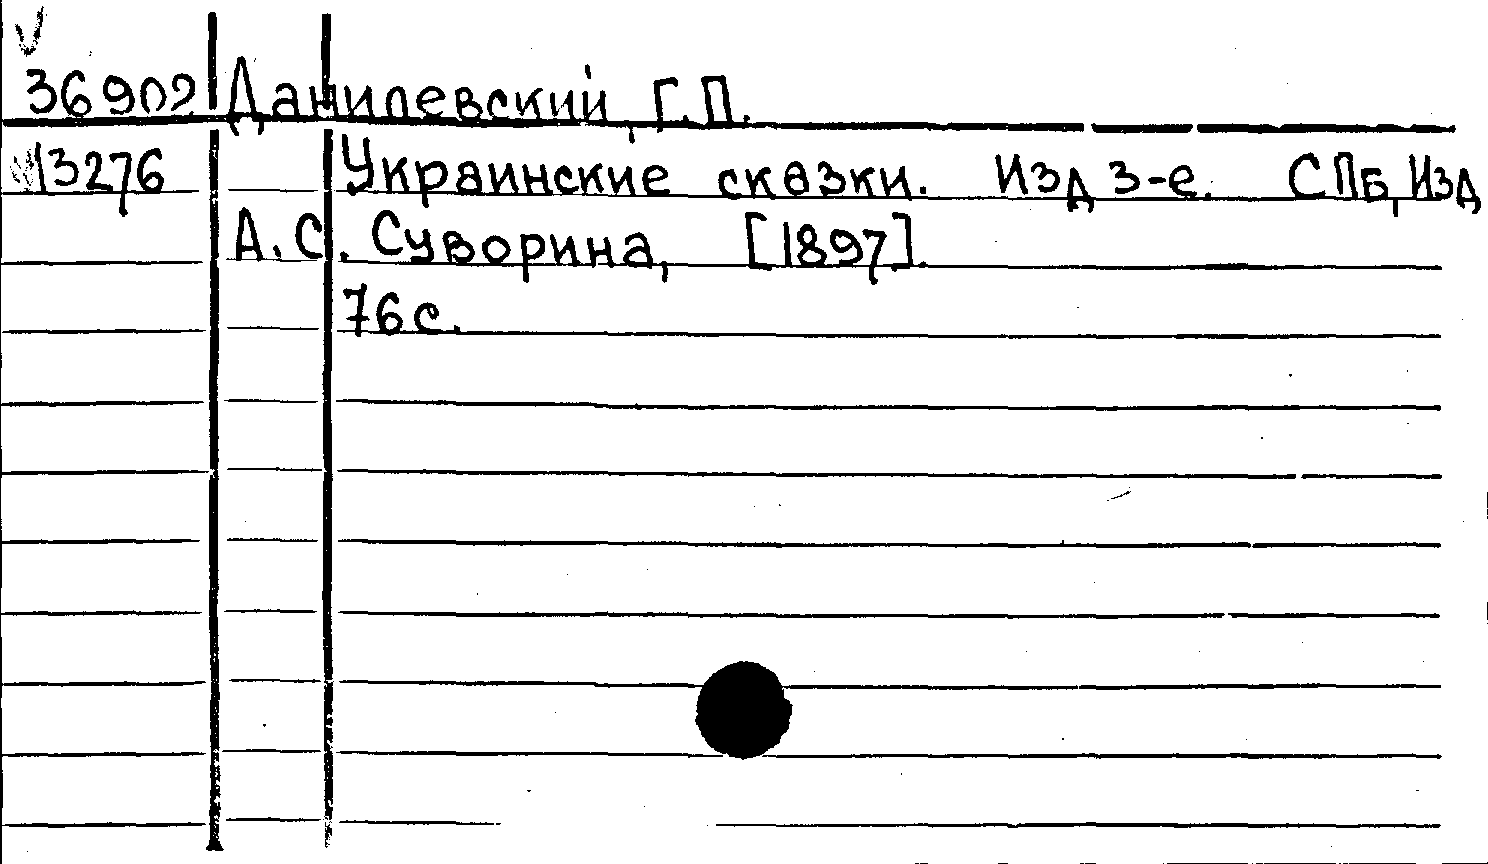 36902 Данилевский, Г.П.
13276 Украинские сказки. Изд 3-е. СПб, Изд
А.С. Суворина, [1897].
76 с.